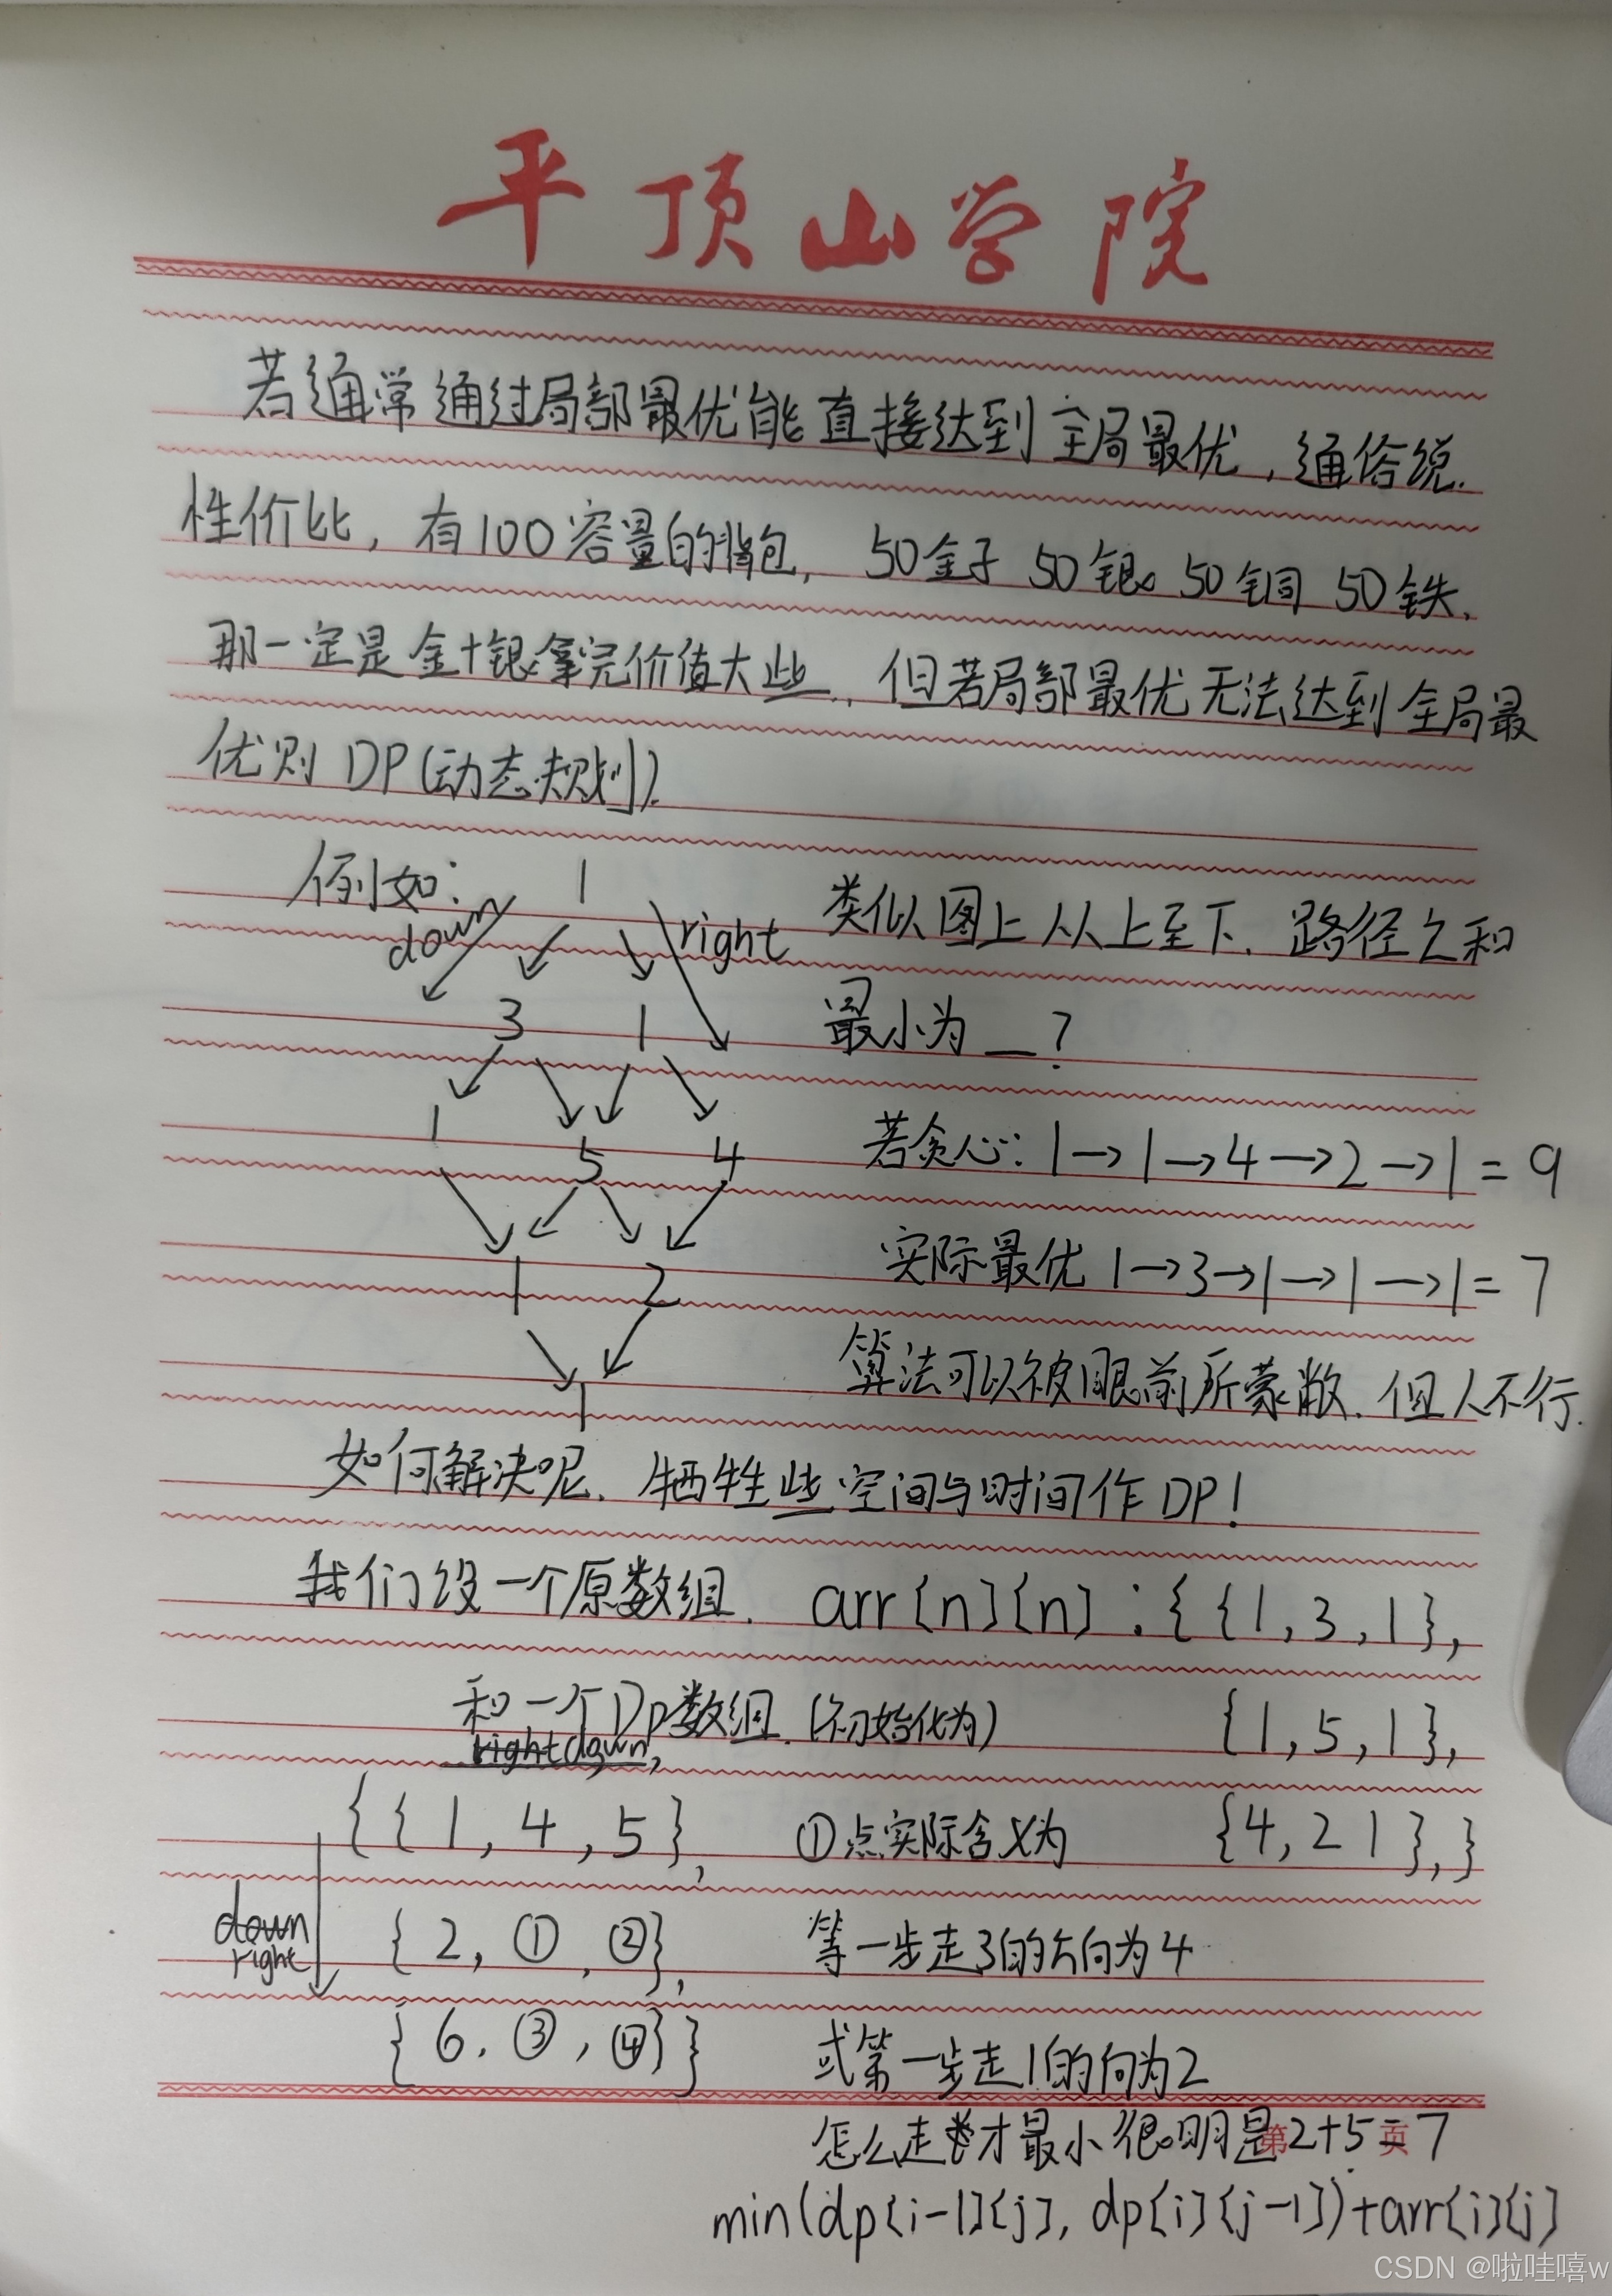 平顶山学院
若通常通过局部最优能直接达到全局最优，通俗说.
性价比，有100容量的背包，50金子 50银 50铜 50铁、
那一定是金+银拿完价值大些.，但若局部最优无法达到全局最
优则 DP(动态规划).
例如: 1 类似图上从上至下、路径之和
down right
3 1 最小为__?
1 5 4 若贪心: 1→1→4→2→1=9
1 2 实际最优 1→3→1→1→1=7
1 算法可以被眼前所蒙敝.但人不行.
如何解决呢、牺牲些空间与时间作DP!
我们设一个原数组. arr[n][n]:{{1,3,1},
和一个Dp数组.(初始化为) {1,5,1},
rightdown,
{{1,4,5}, ①点实际含义为 {4,2 1},}
down
right
{2,①,②}, 等一步走3的方向为4
{6.③,④}} 或第一步走1的向为2
怎么走才最小很明是2+5=7
第 页
min(dp[i-1][j], dp[i][j-1])+arr[i][j]
CSDN @啦哇嘻w